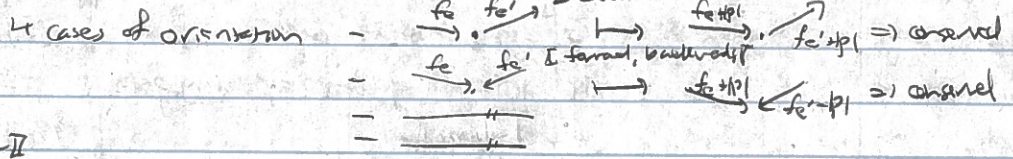 4 cases of orientation - fe fe' ↦ fe+|P| fe'+|P| => conserved
[forward, backwards]
- fe fe' ↦ fe+|P| fe'-|P| => conserved
- "
- "
II